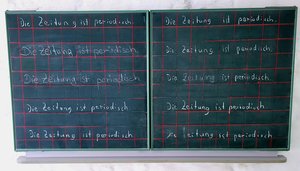 Die Zeitung ist periodisch.
Die Zeitung ist periodisch.
Die Zeitung ist periodisch
Die Zeitung ist periodisch.
Die Zeitung ist periodisch
Die Zeitung ist periodisch.
Die Zeitung ist periodisch.
Die Zeitung ist periodisch.
Die Zeitung ist periodisch.
Die Zeitung ist periodisch